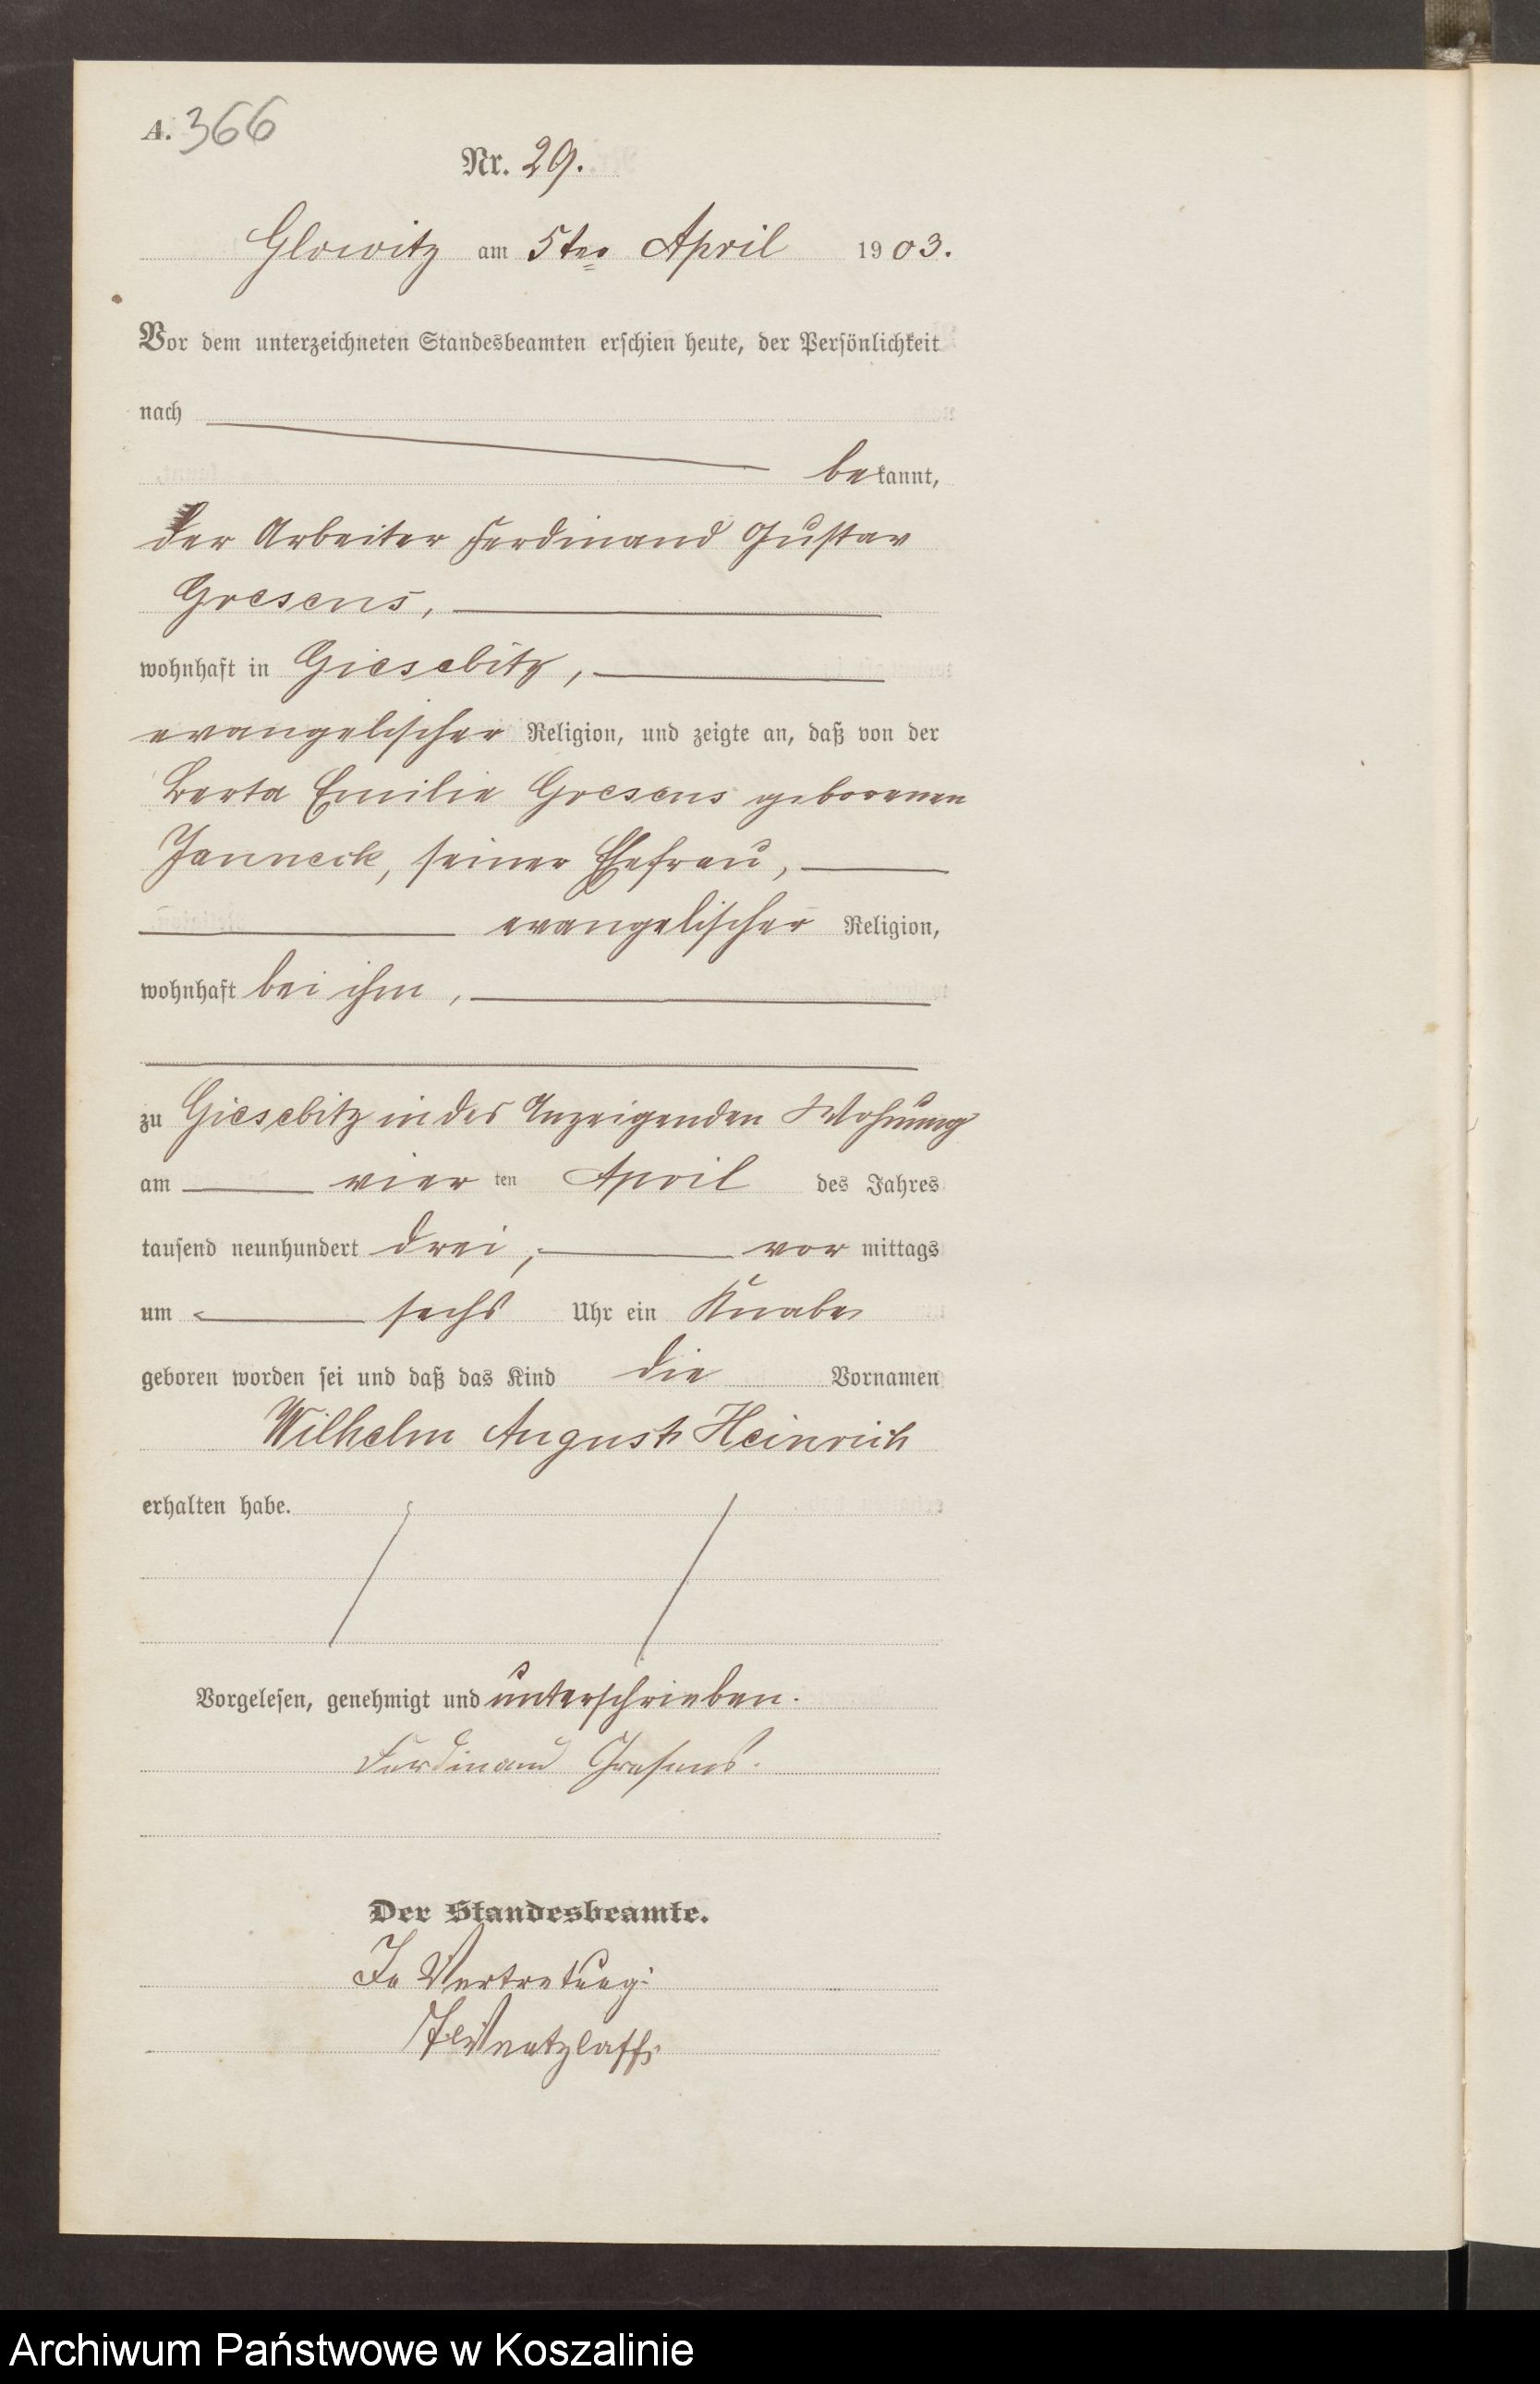 A. 366
Nr. 29.
Glowitz am 5ten April 1903.
Vor dem unterzeichneten Standesbeamten erschien heute, der Persönlichkeit
nach
bekannt,
der Arbeiter Ferdinand Gustav
Gresens,
wohnhaft in Giesebitz,
evangelischer Religion, und zeigte an, daß von der
Berta Emilie Gresens geborenen
Janneck, seiner Ehefrau,
evangelischer Religion,
wohnhaft bei ihm,
zu Giesebitz in des Anzeigenden Wohnung
am vier ten April des Jahres
tausend neunhundert drei, vor mittags
um sechs Uhr ein Knabe
geboren worden sei und daß das Kind die Vornamen
Wilhelm August Heinrich
erhalten habe.
Vorgelesen, genehmigt und unterschrieben.
Ferdinand Gresens.
Der Standesbeamte.
In Vertretung:
Archiwum Państwowe w Koszalinie